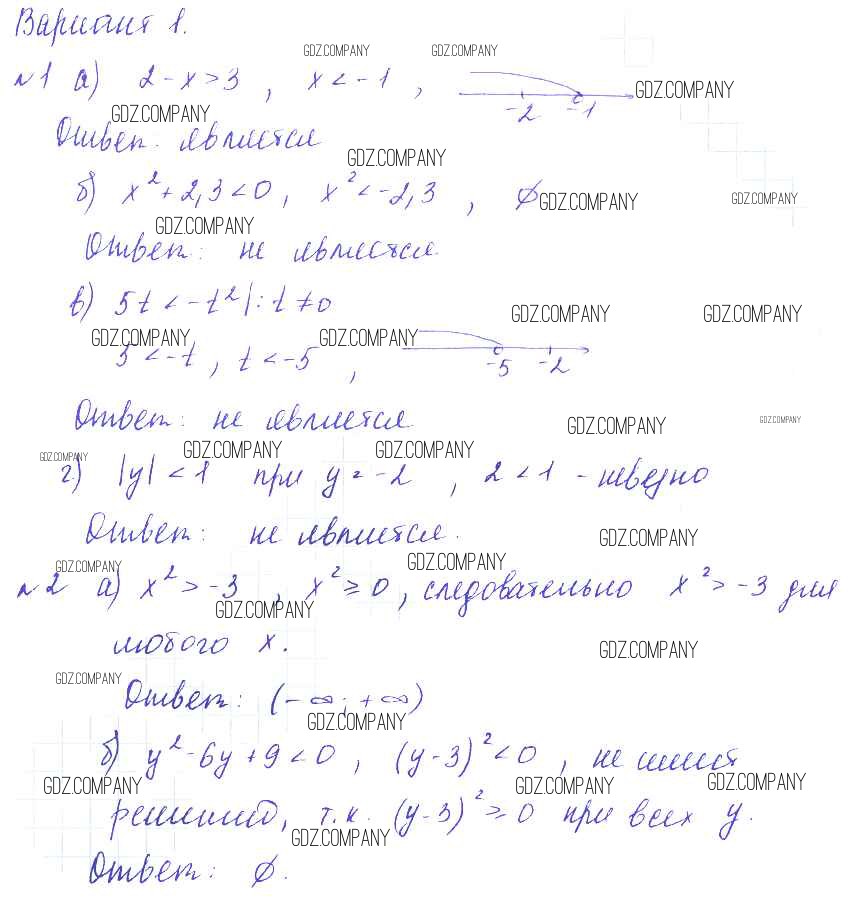 Вариант 1.
GDZ.COMPANY GDZ.COMPANY
№1 а) 2 - x > 3 , x < -1 , -2 -1 GDZ.COMPANY
GDZ.COMPANY
Ответ: является
GDZ.COMPANY
б) x² + 2,3 < 0 , x² < -2,3 , ∅ GDZ.COMPANY GDZ.COMPANY
GDZ.COMPANY
Ответ: не является.
в) 5t < -t² |: t ≠ 0
GDZ.COMPANY GDZ.COMPANY
GDZ.COMPANY GDZ.COMPANY
5 < -t , t < -5 , -5 -2
Ответ: не является.
GDZ.COMPANY GDZ.COMPANY
GDZ.COMPANY GDZ.COMPANY GDZ.COMPANY
г) |y| < 1 при y = -2 , 2 < 1 - неверно
Ответ: не является.
GDZ.COMPANY
GDZ.COMPANY GDZ.COMPANY
№2 а) x² > -3 , x² ≥ 0 , следовательно x² > -3 для
GDZ.COMPANY
любого x.
GDZ.COMPANY
GDZ.COMPANY
Ответ: (-∞; +∞)
GDZ.COMPANY
б) y² - 6y + 9 < 0 , (y - 3)² < 0 , не имеет
GDZ.COMPANY GDZ.COMPANY GDZ.COMPANY
решений, т.к. (y - 3)² ≥ 0 при всех y.
GDZ.COMPANY
Ответ: ∅.